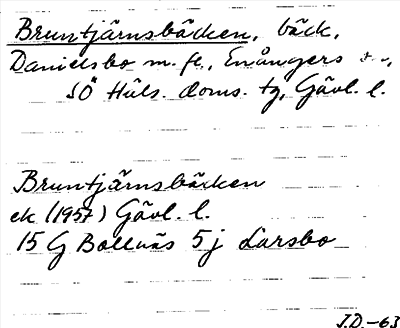 Bruntjärnsbäcken, bäck,
Danielsbo m. fl., Enångers
SÖ Häls. doms. tg, Gävl. l.
Bruntjärnsbäcken
ek (1957) Gävl. l.
15 G Bollnäs 5j Larsbo
J.D.-63